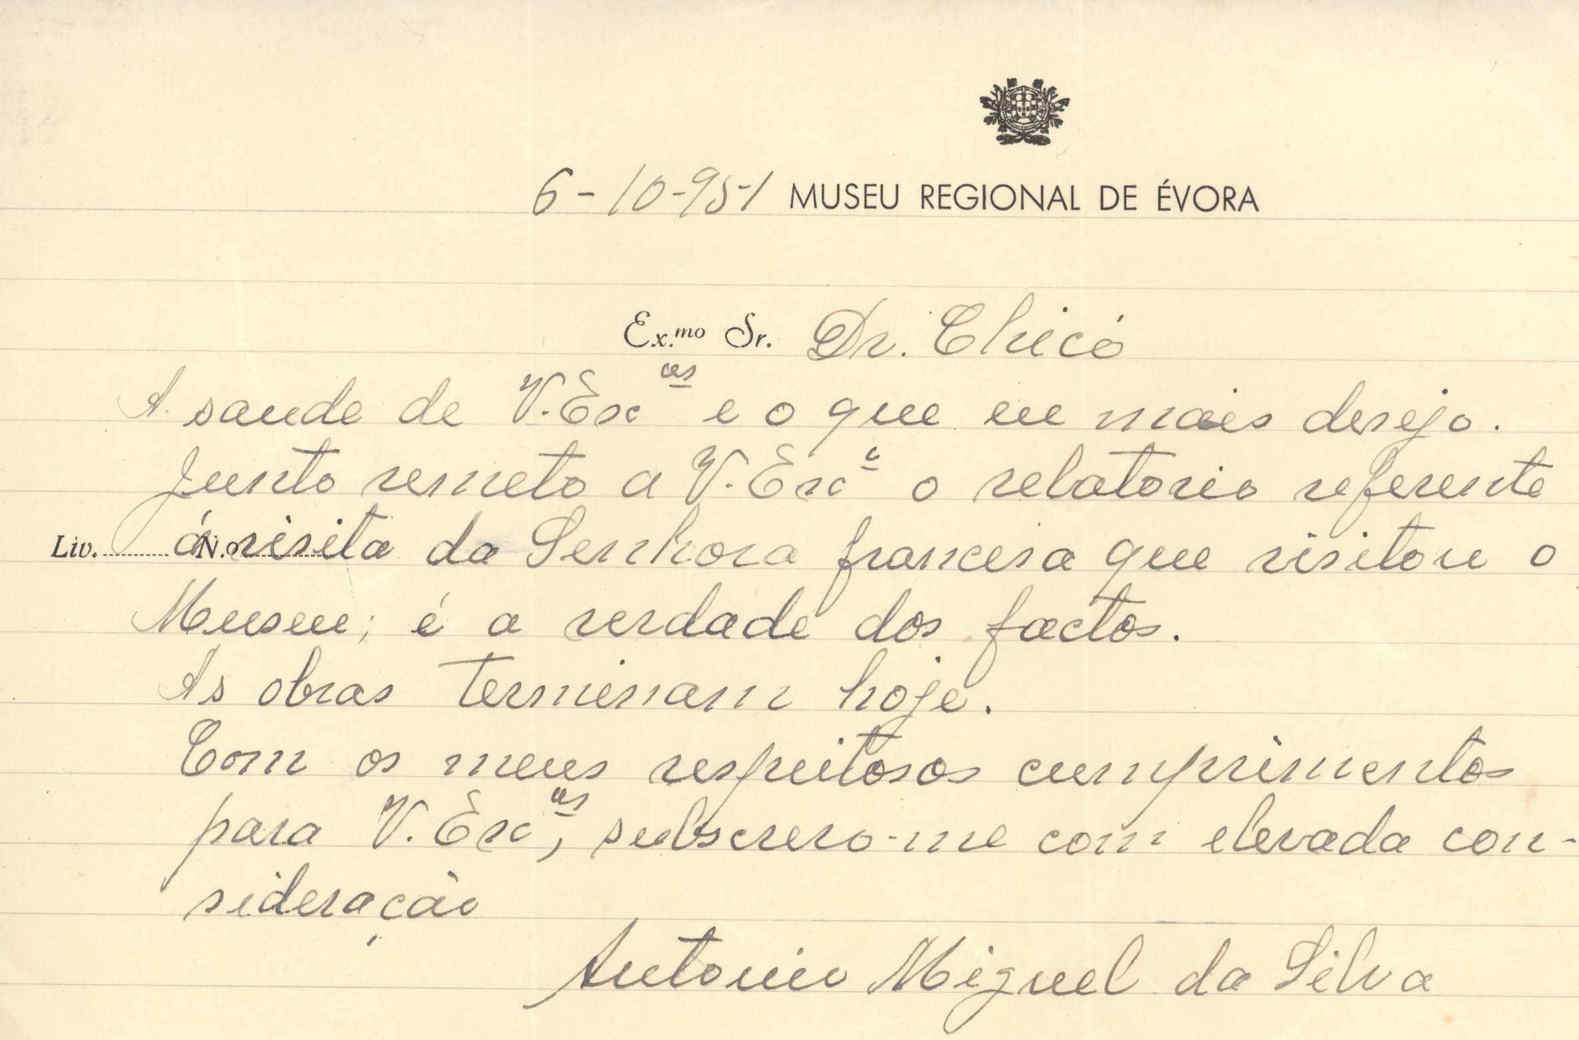 6-10-951 MUSEU REGIONAL DE ÉVORA
Ex.mo Sr. Dr. Chicó
A saude de V. Exas e o que eu mais desejo.
Junto remeto a V. Exa o relatorio referente
Liv. ........ N.o ........ á visita da Senhora francesa que visitou o
Museu; é a verdade dos factos.
As obras terminam hoje.
Com os meus respeitosos cumprimentos
para V. Exas, subscrevo-me com elevada con-
sideração
Antonio Miguel da Silva